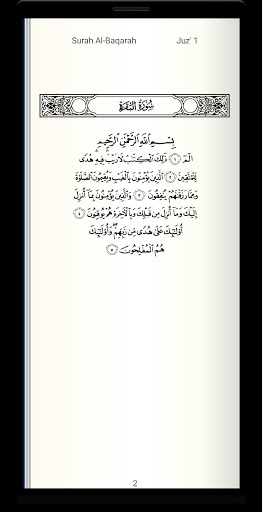 Surah Al-Baqarah Juz' 1
سُورَةُ البَقَرَةِ
بِسْمِ اللَّهِ الرَّحْمَٰنِ الرَّحِيمِ
الٓمٓ ١ ذَٰلِكَ الْكِتَٰبُ لَا رَيْبَ فِيهِ هُدًى
لِّلْمُتَّقِينَ ٢ الَّذِينَ يُؤْمِنُونَ بِالْغَيْبِ وَيُقِيمُونَ الصَّلَوٰةَ
وَمِمَّا رَزَقْنَٰهُمْ يُنفِقُونَ ٣ وَالَّذِينَ يُؤْمِنُونَ بِمَآ أُنزِلَ
إِلَيْكَ وَمَآ أُنزِلَ مِن قَبْلِكَ وَبِالْءَاخِرَةِ هُمْ يُوقِنُونَ ٤
أُو۟لَٰٓئِكَ عَلَىٰ هُدًى مِّن رَّبِّهِمْ وَأُو۟لَٰٓئِكَ
هُمُ الْمُفْلِحُونَ ٥
2